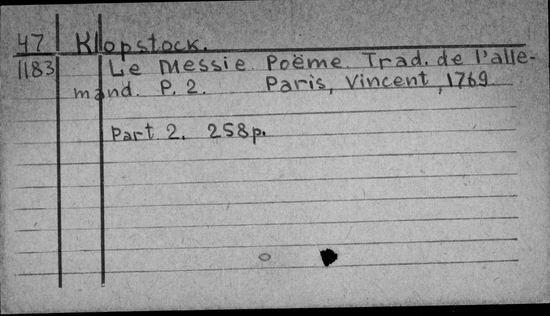 47 Klopstock.
1183 Le Messie Poëme. Trad. de l'alle-
mand. P. 2. Paris, Vincent, 1769
Part 2. 258p.